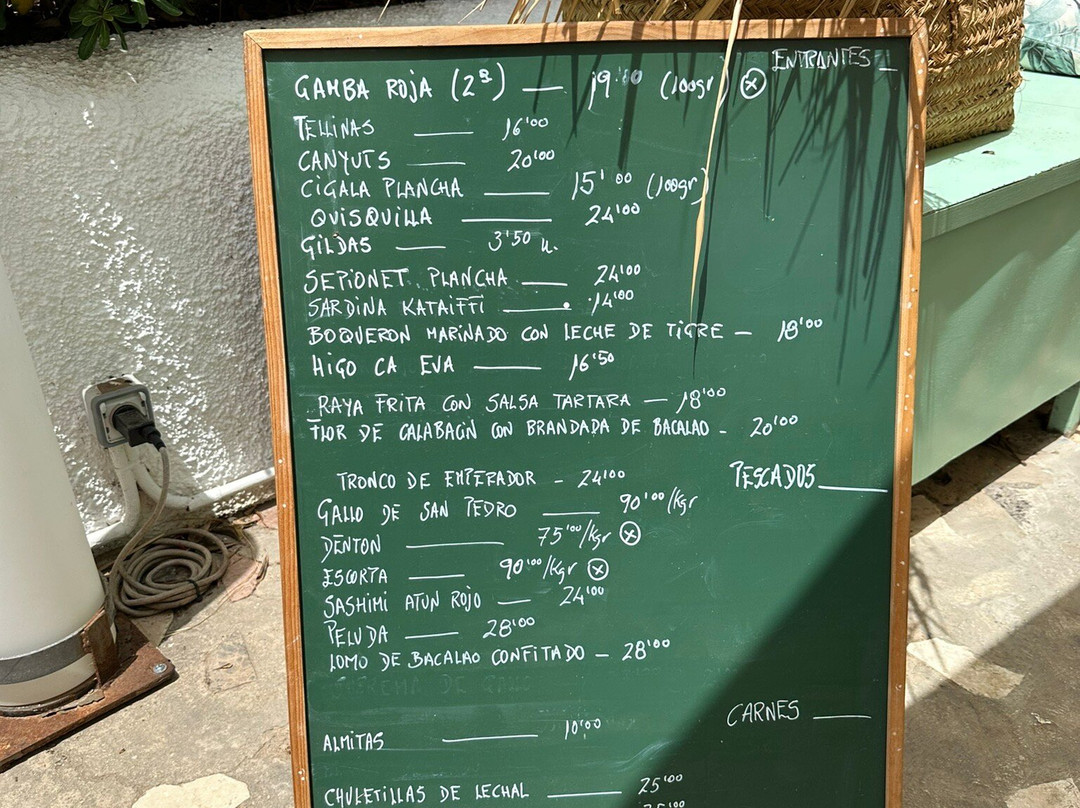 ENTRANTES
GAMBA ROJA (2ª) — 19'00 (100gr) ⓧ
TELLINAS — 16'00
CANYUTS — 20'00
CIGALA PLANCHA — 15'00 (100gr)
QUISQUILLA — 24'00
GILDAS — 3'50 u.
SEPIONET PLANCHA — 24'00
SARDINA KATAIFFI — 14'00
BOQUERON MARINADO CON LECHE DE TIGRE — 18'00
HIGO CA EVA — 16'50
RAYA FRITA CON SALSA TARTARA — 18'00
FLOR DE CALABACIN CON BRANDADA DE BACALAO - 20'00
PESCADOS
TRONCO DE EMPERADOR - 24'00
GALLO DE SAN PEDRO — 90'00/Kgr
DENTON — 75'00/Kgr ⓧ
ESCORTA — 90'00/Kgr ⓧ
SASHIMI ATUN ROJO — 24'00
PELUDA — 28'00
LOMO DE BACALAO CONFITADO — 28'00
CARNES
ALMITAS — 10'00
CHULETILLAS DE LECHAL — 25'00